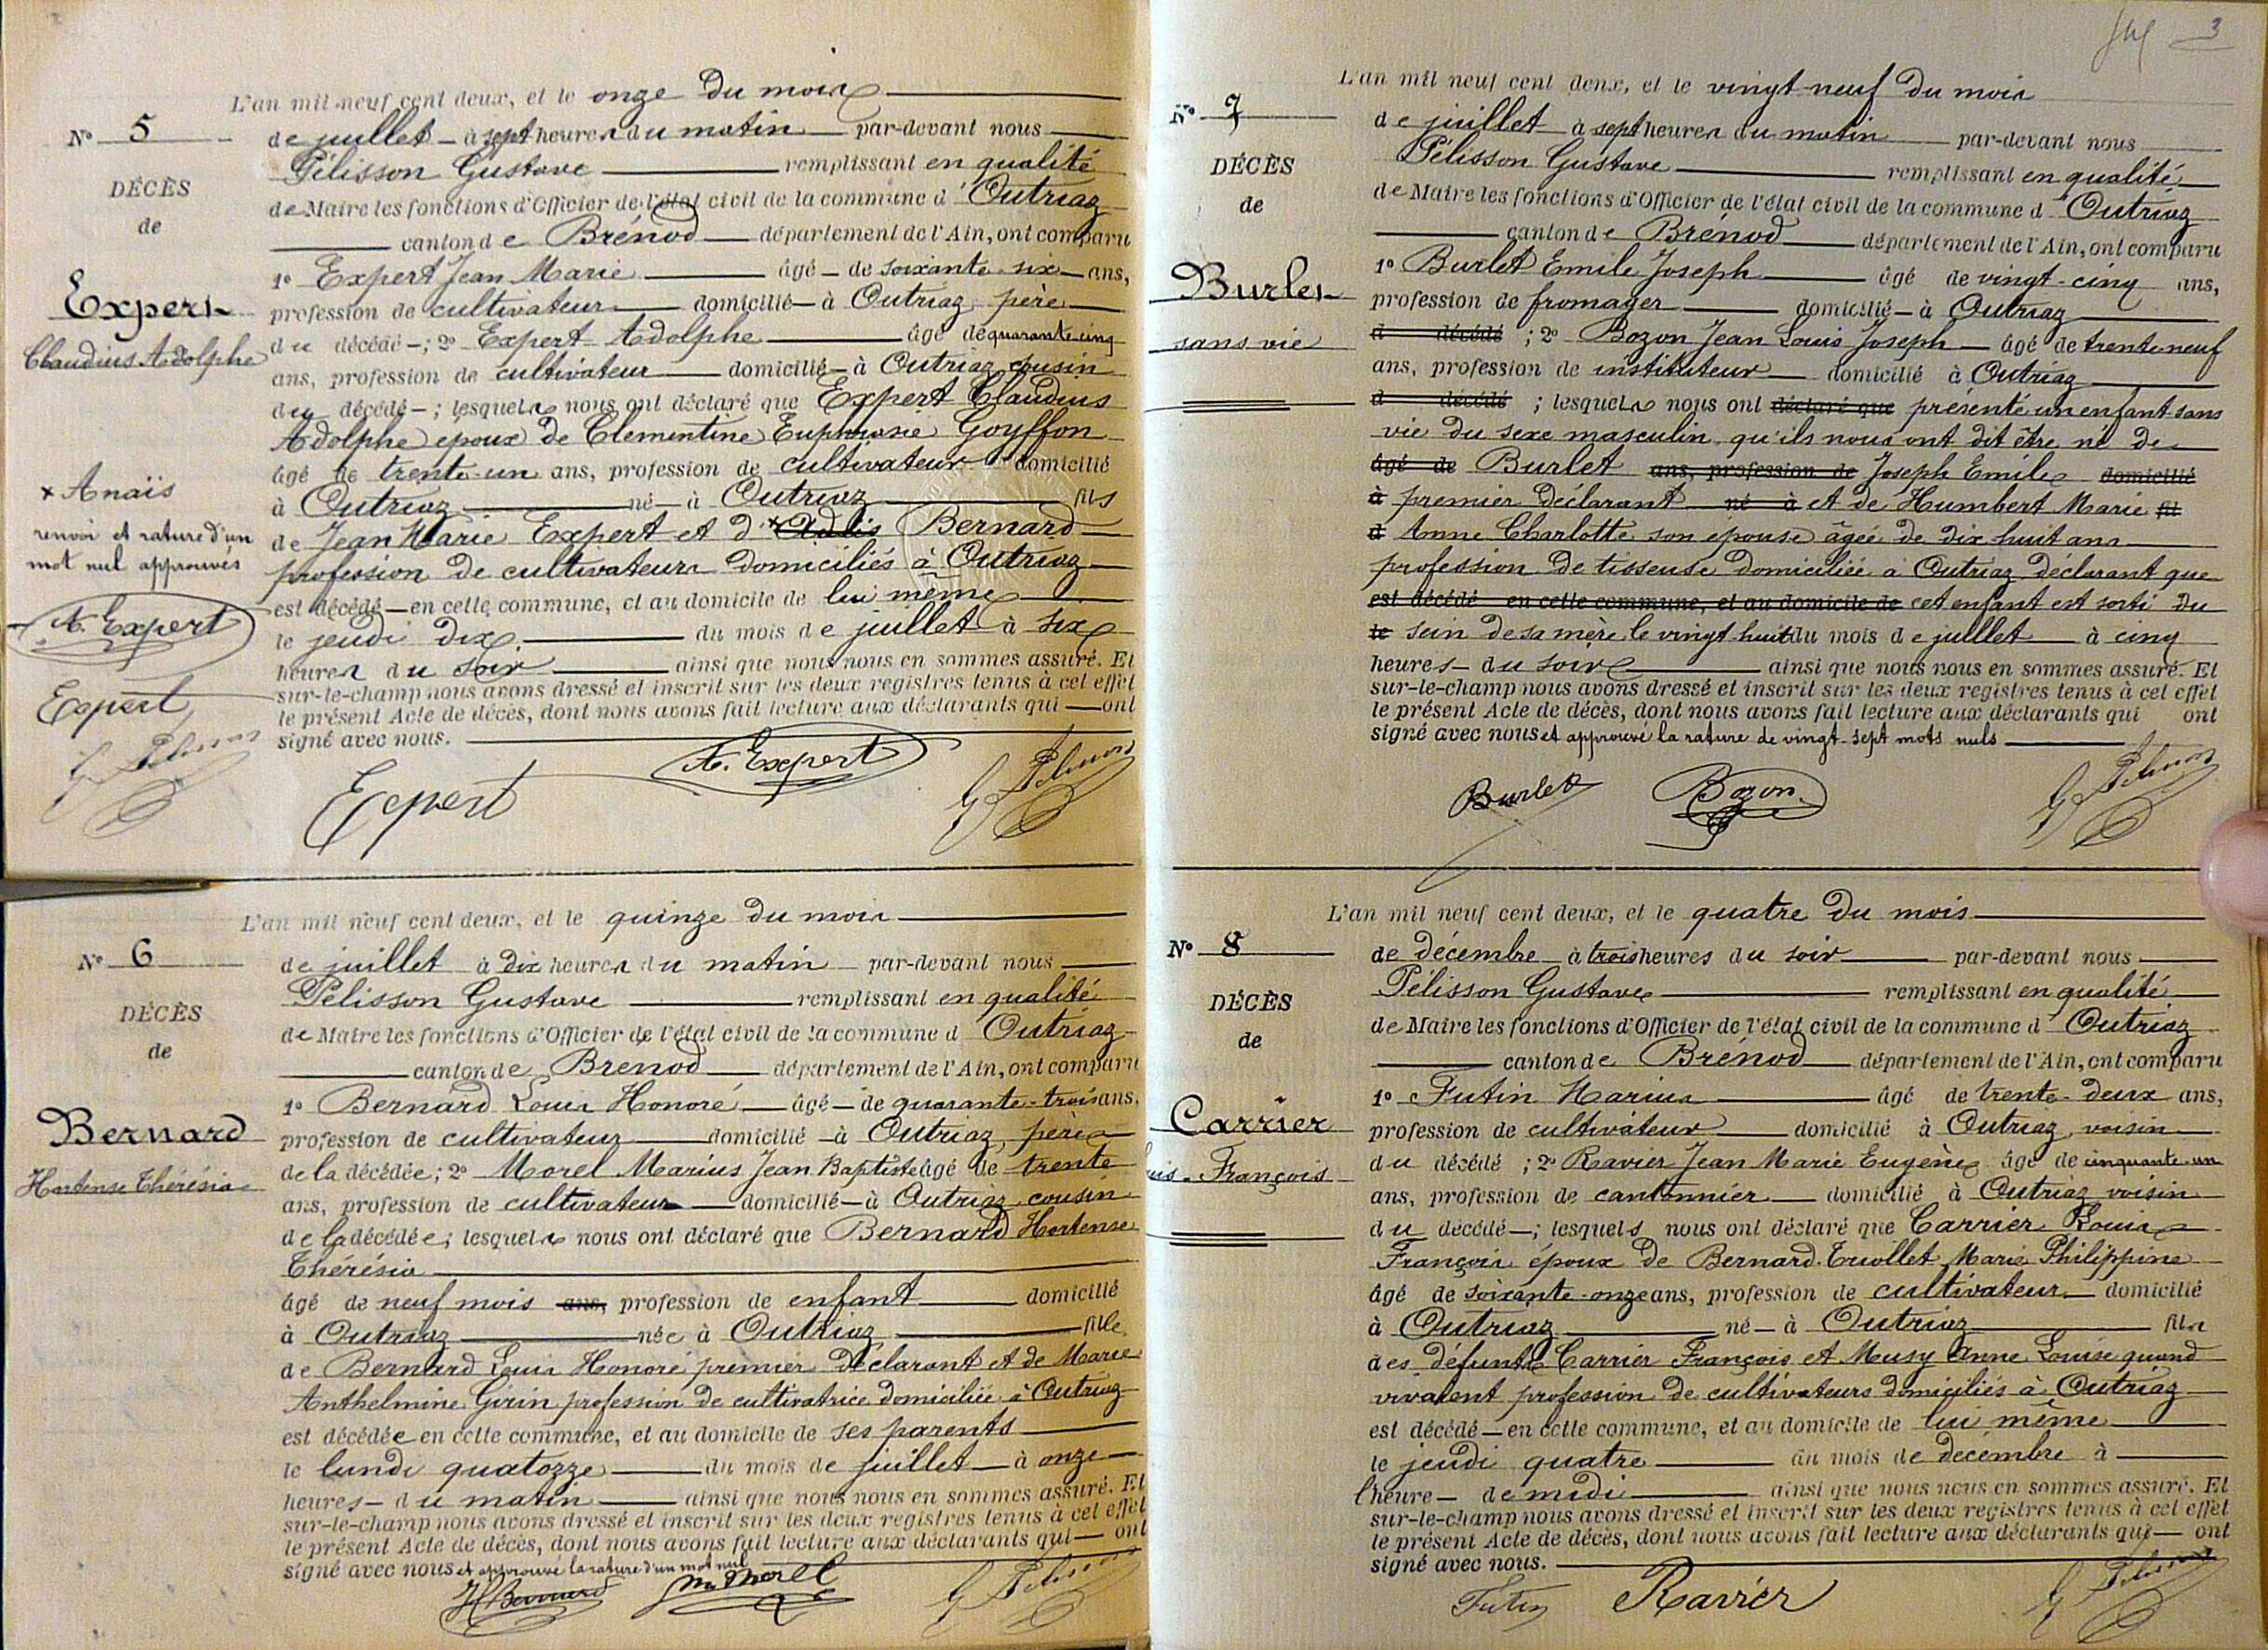 L'an mil neuf cent deux, et le onze du mois
N° 5
de juillet à sept heures du matin par-devant nous
Pélisson Gustave remplissant en qualité
DÉCÈS
de Maire les fonctions d'Officier de l'état civil de la commune d'Outriaz
de
canton de Brénod département de l'Ain, ont comparu
1° Expert Jean Marie âgé de soixante-six ans,
Expert
profession de cultivateur domicilié à Outriaz, père
du décédé ; 2° Expert Adolphe âgé de quarante-cinq
Claudius Adolphe
ans, profession de cultivateur domicilié à Outriaz cousin
du décédé ; lesquels nous ont déclaré que Expert Claudius
Adolphe époux de Clémentine Euphrasie Goyffon
âgé de trente-un ans, profession de cultivateur domicilié
x Anaïs
à Outriaz né à Outriaz fils
renvoi et rature d'un
de Jean Marie Expert et d'x Bernard
mot nul approuvés
profession de cultivateurs domiciliés à Outriaz
est décédé en cette commune, et au domicile de lui même
A. Expert
le jeudi dix du mois de juillet à six
heures du soir ainsi que nous nous en sommes assuré. Et
Expert
sur-le-champ nous avons dressé et inscrit sur les deux registres tenus à cet effet
le présent Acte de décès, dont nous avons fait lecture aux déclarants qui ont
G. Pélisson
signé avec nous.
Expert A. Expert G. Pélisson
L'an mil neuf cent deux, et le quinze du mois
N° 6
de juillet à dix heures du matin par-devant nous
Pélisson Gustave remplissant en qualité
DÉCÈS
de Maire les fonctions d'Officier de l'état civil de la commune d'Outriaz
de
canton de Brenod département de l'Ain, ont comparu
1° Bernard Louis Honoré âgé de quarante-trois ans,
Bernard
profession de cultivateur domicilié à Outriaz, père
de la décédée ; 2° Morel Marius Jean Baptiste âgé de trente
Hortense Thérésia
ans, profession de cultivateur domicilié à Outriaz cousin
de la décédée ; lesquels nous ont déclaré que Bernard Hortense
Thérésia
âgé de neuf mois ans, profession de enfant domicilié
à Outriaz née à Outriaz fille
de Bernard Louis Honoré premier déclarant et de Marie
Anthelmine Girin profession de cultivatrice domiciliée à Outriaz
est décédée en cette commune, et au domicile de ses parents
le lundi quatorze du mois de juillet à onze
heures du matin ainsi que nous nous en sommes assuré. Et
sur-le-champ nous avons dressé et inscrit sur les deux registres tenus à cet effet
le présent Acte de décès, dont nous avons fait lecture aux déclarants qui ont
signé avec nous et approuvé la rature d'un mot nul
H Bernard M. Morel G. Pélisson
3
L'an mil neuf cent deux, et le vingt-neuf du mois
N° 7
de juillet à sept heures du matin par-devant nous
Pélisson Gustave remplissant en qualité
DÉCÈS
de Maire les fonctions d'Officier de l'état civil de la commune d'Outriaz
de
canton de Brénod département de l'Ain, ont comparu
1° Burlet Emile Joseph âgé de vingt-cinq ans,
Burlet
profession de fromager domicilié à Outriaz
sans vie
d décédé ; 2° Bozon Jean Louis Joseph âgé de trente neuf
ans, profession de instituteur domicilié à Outriaz
d décédé ; lesquels nous ont déclaré que présenté un enfant sans
vie du sexe masculin qu'ils nous ont dit être né de
âgé de Burlet ans, profession de Joseph Emile domicilié
à premier déclarant né à et de Humbert Marie fil
d Anne Charlotte son épouse âgée de dix huit ans
profession de tisseuse domiciliée à Outriaz déclarant que
est décédé en cette commune, et au domicile de cet enfant est sorti du
le sein de sa mère le vingt-huit du mois de juillet à cinq
heures du soir ainsi que nous nous en sommes assuré. Et
sur-le-champ nous avons dressé et inscrit sur les deux registres tenus à cet effet
le présent Acte de décès, dont nous avons fait lecture aux déclarants qui ont
signé avec nous et approuvé la rature de vingt-sept mots nuls
Burlet Bozon G. Pélisson
L'an mil neuf cent deux, et le quatre du mois
N° 8
de décembre à trois heures du soir par-devant nous
Pélisson Gustave remplissant en qualité
DÉCÈS
de Maire les fonctions d'Officier de l'état civil de la commune d'Outriaz
de
canton de Brénod département de l'Ain, ont comparu
1° Futin Marius âgé de trente-deux ans,
Carrier
profession de cultivateur domicilié à Outriaz, voisin
du décédé ; 2° Ravier Jean Marie Eugène âgé de cinquante-un
uis François
ans, profession de cantonnier domicilié à Outriaz voisin
du décédé ; lesquels nous ont déclaré que Carrier Louis
François époux de Bernard-Truollet Marie Philippine
âgé de soixante-onze ans, profession de cultivateur domicilié
à Outriaz né à Outriaz fils
des défunts Carrier François et Musy Anne Louise quand
vivaient profession de cultivateurs domiciliés à Outriaz
est décédé en cette commune, et au domicile de lui même
le jeudi quatre du mois de décembre à
l'heure de midi ainsi que nous nous en sommes assuré. Et
sur-le-champ nous avons dressé et inscrit sur les deux registres tenus à cet effet
le présent Acte de décès, dont nous avons fait lecture aux déclarants qui ont
signé avec nous.
Futin Ravier G. Pélisson